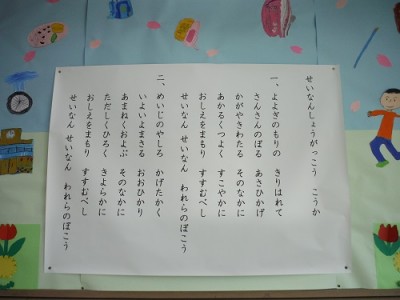 せいなんしょうがっこう　こうか
一、よよぎのもりの　きりはれて
さんさんのぼる　あさひかげ
かがやきわたる　そのなかに
あかるくつよく　すこやかに
おしえをまもり　すすむべし
せいなん　せいなん　われらのぼこう
二、めいじのやしろ　かげたかく
いよいよまさる　おおひかり
あまねくおよぶ　そのなかに
ただしくひろく　きよらかに
おしえをまもり　すすむべし
せいなん　せいなん　われらのぼこう